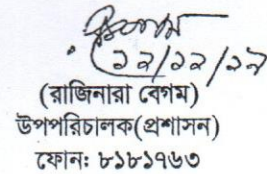 ১২/১২/১৯
(রাজিনারা বেগম)
উপপরিচালক(প্রশাসন)
ফোনঃ ৮১৮১৭৬৩